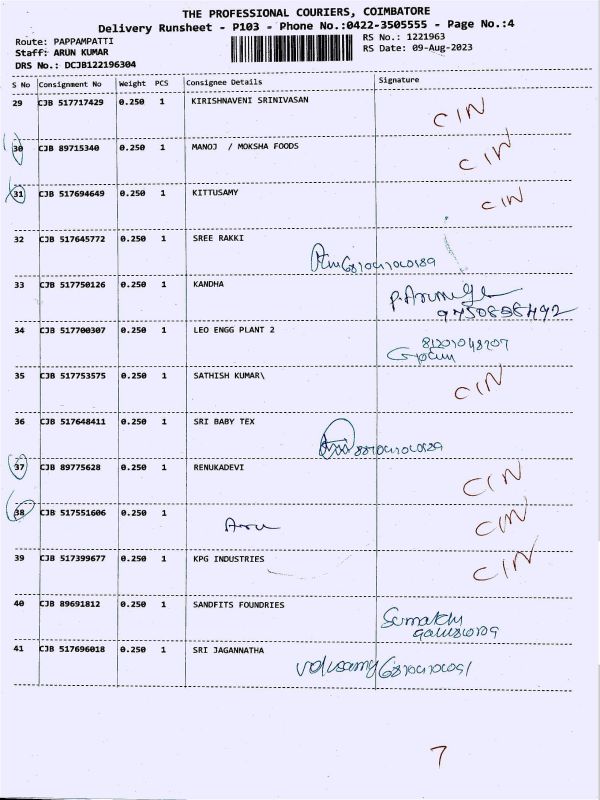 THE PROFESSIONAL COURIERS, COIMBATORE
Delivery Runsheet - P103 - Phone No.:0422-3505555 - Page No.:4
Route: PAPPAMPATTI RS No.: 1221963
Staff: ARUN KUMAR RS Date: 09-Aug-2023
DRS No.: DCJB122196304
S No Consignment No Weight PCS Consignee Details Signature
29 CJB 517717429 0.250 1 KIRISHNAVENI SRINIVASAN CIN
30 CJB 89715340 0.250 1 MANOJ / MOKSHA FOODS CIN
31 CJB 517694649 0.250 1 KITTUSAMY CIN
32 CJB 517645772 0.250 1 SREE RAKKI
33 CJB 517750126 0.250 1 KANDHA
34 CJB 517700307 0.250 1 LEO ENGG PLANT 2
35 CJB 517753575 0.250 1 SATHISH KUMAR\ CIN
36 CJB 517648411 0.250 1 SRI BABY TEX
37 CJB 89775628 0.250 1 RENUKADEVI CIN
38 CJB 517551606 0.250 1 CIN
39 CJB 517399677 0.250 1 KPG INDUSTRIES CIN
40 CJB 89691812 0.250 1 SANDFITS FOUNDRIES
41 CJB 517696018 0.250 1 SRI JAGANNATHA
7